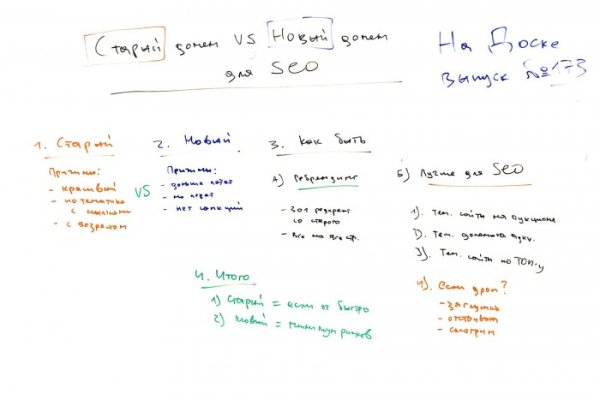 Старый домен VS Новый домен
для SEO
На Доске
выпуск №173
1. Старый
Причины:
- красивый
- по тематике
с ссылками
- с возрастом
VS
2. Новый
Причины:
- дольше
-
- нет санкций
3. Как быть
А) Ребрендинг
- 301 редирект
со старого
- Все на все стр.
Б) Лучше для SEO
1). Тем. сайты на аукционе
2). Тем. домены
3). Тем. сайты по ТОП-у
4). Если дроп?
- загрузка
- отстойник
- смотрим
4. Итого
1) Старый = если оч быстро
2) Новый = минимум рисков